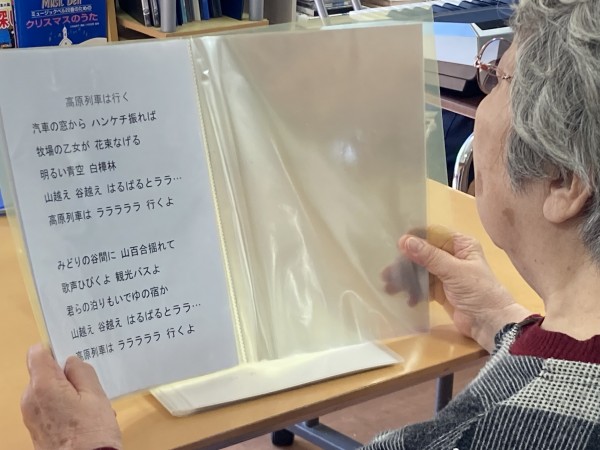 Music Bell
ミュージックベルの音のための
クリスマスのうた
探
高原列車は行く
汽車の窓から ハンケチ振れば
牧場の乙女が 花束なげる
明るい青空 白樺林
山越え 谷越え はるばるとララ…
高原列車は ラララララ 行くよ
みどりの谷間に 山百合揺れて
歌声ひびくよ 観光バスよ
君らの泊りもいでゆの宿か
山越え 谷越え はるばるとララ…
高原列車は ラララララ 行くよ